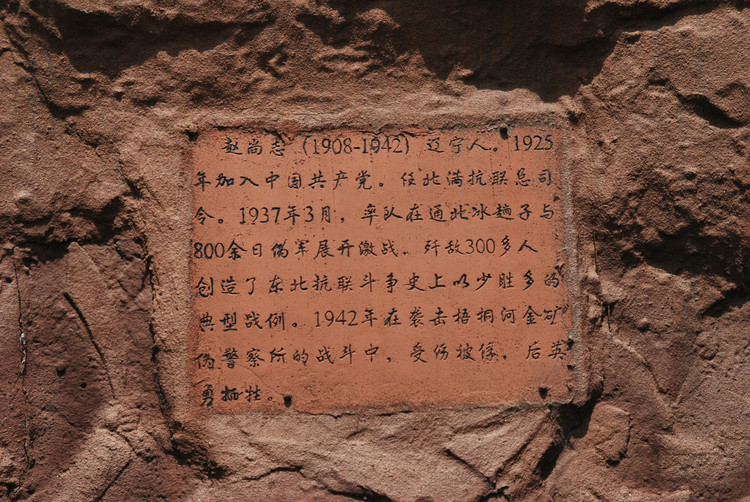 赵尚志 (1908-1942) 辽宁人。1925
年加入中国共产党。任北满抗联总司
令。1937年3月，率队在通北冰趟子与
800余日伪军展开激战。歼敌300多人
创造了东北抗联斗争史上以少胜多的
典型战例。1942年在袭击梧桐河金矿
伪警察所的战斗中，受伤被俘，后英
勇牺牲。